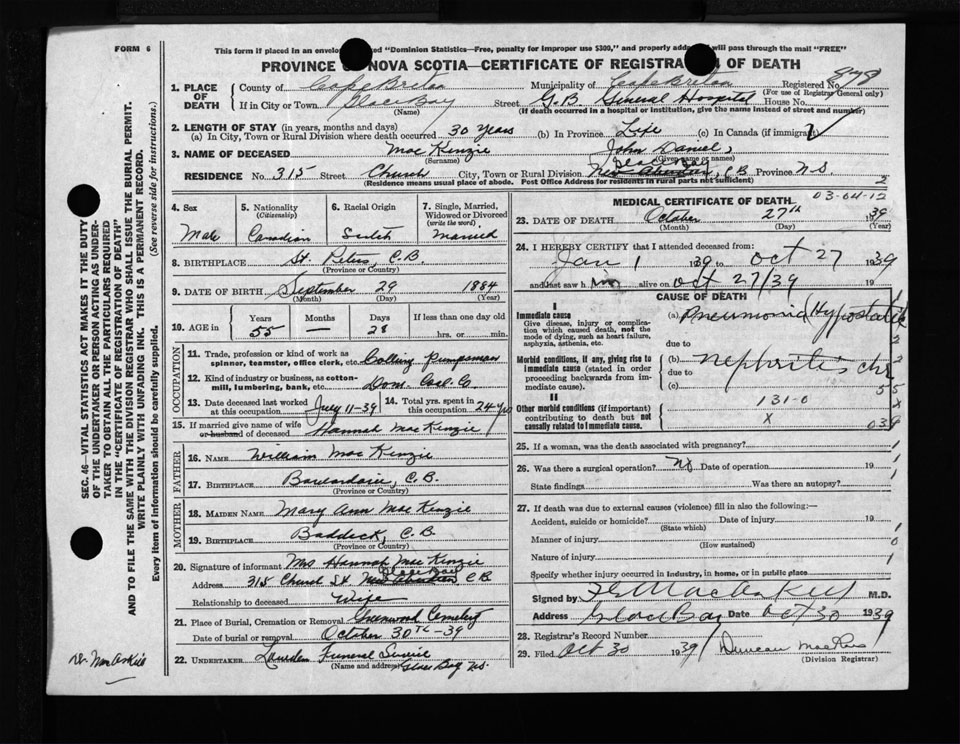 FORM 6
This form if placed in an envelo ed "Dominion Statistics—Free, penalty for improper use $300," and properly addre will pass through the mail "FREE"
PROVINCE OF NOVA SCOTIA—CERTIFICATE OF REGISTRA N OF DEATH
1. PLACE OF DEATH
County of Cape Breton Municipality of Cape Breton Registered No.
(For use of Registrar General only)
If in City or Town Glace Bay Street G.B. General Hospital House No.
(Name) (If death occurred in a hospital or institution, give the name instead of street and number)
2. LENGTH OF STAY (in years, months and days)
(a) In City, Town or Rural Division where death occurred 30 Years (b) In Province Life (c) In Canada (if immigrant)
3. NAME OF DECEASED Mac Kenzie John Daniel,
(Surname) (Given name or names)
Glace Bay
RESIDENCE No. 315 Street Church City, Town or Rural Division New Aberdeen, C.B. Province N.S.
(Residence means usual place of abode. Post Office Address for residents in rural parts not sufficient)
2
4. Sex 5. Nationality (Citizenship) 6. Racial Origin 7. Single, Married, Widowed or Divorced (write the word)
Male Canadian Scotch Married
8. BIRTHPLACE St. Peters, C.B.
(Province or Country)
9. DATE OF BIRTH September 29 1884
(Month) (Day) (Year)
10. AGE in Years Months Days If less than one day old
55 — 28 hrs. or min.
OCCUPATION
11. Trade, profession or kind of work as spinner, teamster, office clerk, etc. Colliery Pumpsman
12. Kind of industry or business, as cotton-mill, lumbering, bank, etc. Dom. Coal Co.
13. Date deceased last worked at this occupation July 11-39 14. Total yrs. spent in this occupation 24 yrs
15. If married give name of wife or husband of deceased Hannah Mac Kenzie
FATHER
16. NAME William Mac Kenzie
17. BIRTHPLACE Boularderie, C.B.
(Province or Country)
MOTHER
18. MAIDEN NAME Mary Ann Mac Kenzie
19. BIRTHPLACE Baddeck, C.B.
(Province or Country)
20. Signature of informant Mrs Hannah Mac Kenzie
Glace Bay
Address 315 Church St New Aberdeen C.B
Relationship to deceased Wife
21. Place of Burial, Cremation or Removal Greenwood Cemetery
Date of burial or removal October 30TH-39
22. UNDERTAKER Funeral Service
(Name and address) Glace Bay N.S.
MEDICAL CERTIFICATE OF DEATH
03-04-12
23. DATE OF DEATH October 27th 1939
(Month) (Day) (Year)
24. I HEREBY CERTIFY that I attended deceased from:
Jan 1 1939 to Oct 27 1939
and last saw h im alive on Oct 27/39
CAUSE OF DEATH
I
Immediate cause
Give disease, injury or complication which caused death, not the mode of dying, such as heart failure, asphyxia, asthenia, etc.
(a) Pneumonia (Hypostatic
due to
Morbid conditions, if any, giving rise to immediate cause (stated in order proceeding backwards from immediate cause).
(b) Nephritis chr
due to
(c)
II
Other morbid conditions (if important) contributing to death but not causally related to immediate cause.
131-0
x
1
2
55
x
039
25. If a woman, was the death associated with pregnancy? 1
26. Was there a surgical operation? No Date of operation 19 1
State findings Was there an autopsy? 1
27. If death was due to external causes (violence) fill in also the following:—
Accident, suicide or homicide? Date of injury 19
(State which) 1
Manner of injury 0
(How sustained)
Nature of injury 1
Specify whether injury occurred in industry, in home, or in public place
Signed by M.D.
Address Glace Bay Date Oct 30 1939
28. Registrar's Record Number
29. Filed Oct 30 1939 Duncan
(Division Registrar)
SEC. 46—VITAL STATISTICS ACT MAKES IT THE DUTY OF THE UNDERTAKER OR PERSON ACTING AS UNDERTAKER TO OBTAIN ALL THE PARTICULARS REQUIRED IN THE "CERTIFICATE OF REGISTRATION OF DEATH"
AND TO FILE THE SAME WITH THE DIVISION REGISTRAR WHO SHALL ISSUE THE BURIAL PERMIT.
WRITE PLAINLY WITH UNFADING INK. THIS IS A PERMANENT RECORD.
Every item of information should be carefully supplied. (See reverse side for instructions.)
Dr.